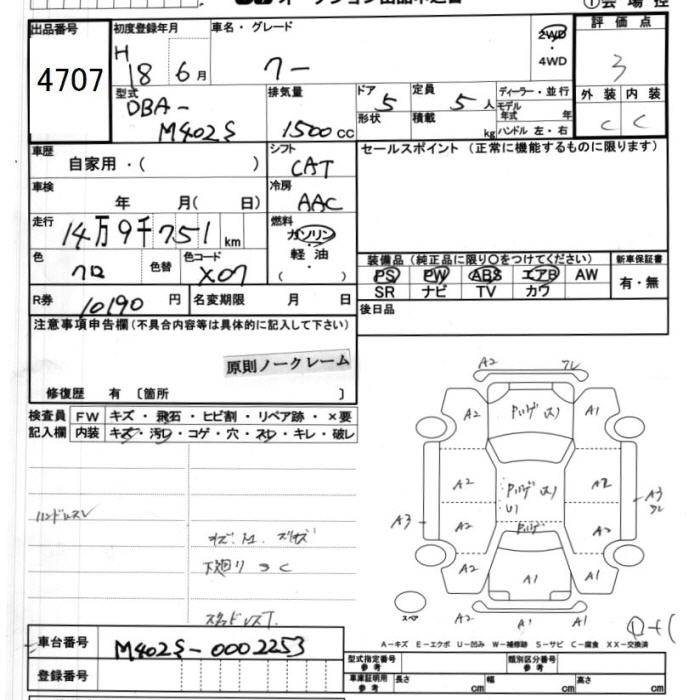 ①会場控
出品番号
4707
初度登録年月
H 18 6月
車名・グレード
クー
2WD
・
4WD
評価点
3
外装 内装
C C
型式
DBA-
M402S
排気量
1500cc
ドア
5
形状
定員
5人
積載
kg
ディーラー・並行
モデル
年式 年
ハンドル 左・右
車歴
自家用・( )
シフト
CAT
セールスポイント (正常に機能するものに限ります)
車検
年 月( 日)
冷房
AAC
走行
14万9千751km
燃料
ガソリン
軽油
( )
色
クロ
色替
色コード
X07
装備品 (純正品に限り○をつけてください)
PS PW ABS エアB AW
SR ナビ TV カワ
新車保証書
有・無
R券
10190 円
名変期限 月 日
後日品
注意事項申告欄(不具合内容等は具体的に記入して下さい)
原則ノークレーム
修復歴 有 〔箇所 〕
検査員
記入欄
FW キズ・飛石・ヒビ割・リペア跡・×要
内装 キズ・汚レ・コゲ・穴・スレ・キレ・破レ
下廻りSC
A2
A2 A1
A2 A2
A3 A2 A2 A3
A2 A1 A1
A1 A1
スペア
車台番号
M402S-0002253
登録番号
A-キズ E-エクボ U-凹み W-補修跡 S-サビ C-腐食 XX-交換済
型式指定番号
参考
類別区分番号
参考
車庫証明用
参考
長さ cm 幅 cm 高さ cm